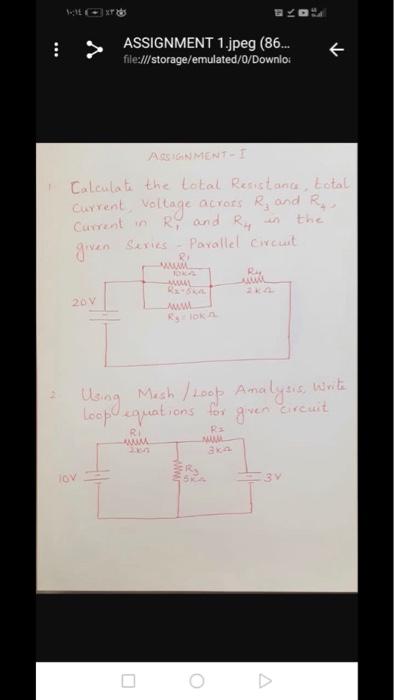 ASSIGNMENT 1.jpeg (86...
file:///storage/emulated/0/Downloa
ASSIGNMENT-I
1 Calculate the total Resistance, total
Current, Voltage across R3 and R4,
Current in R1 and R4 in the
given Series - Parallel Circuit
R1
10KΩ
R2=5KΩ
R3=10KΩ
R4
2KΩ
20V
2 Using Mesh / Loop Analysis, Write
Loop equations for given circuit
R1
2KΩ
R2
3KΩ
R3
5KΩ
10V
3V